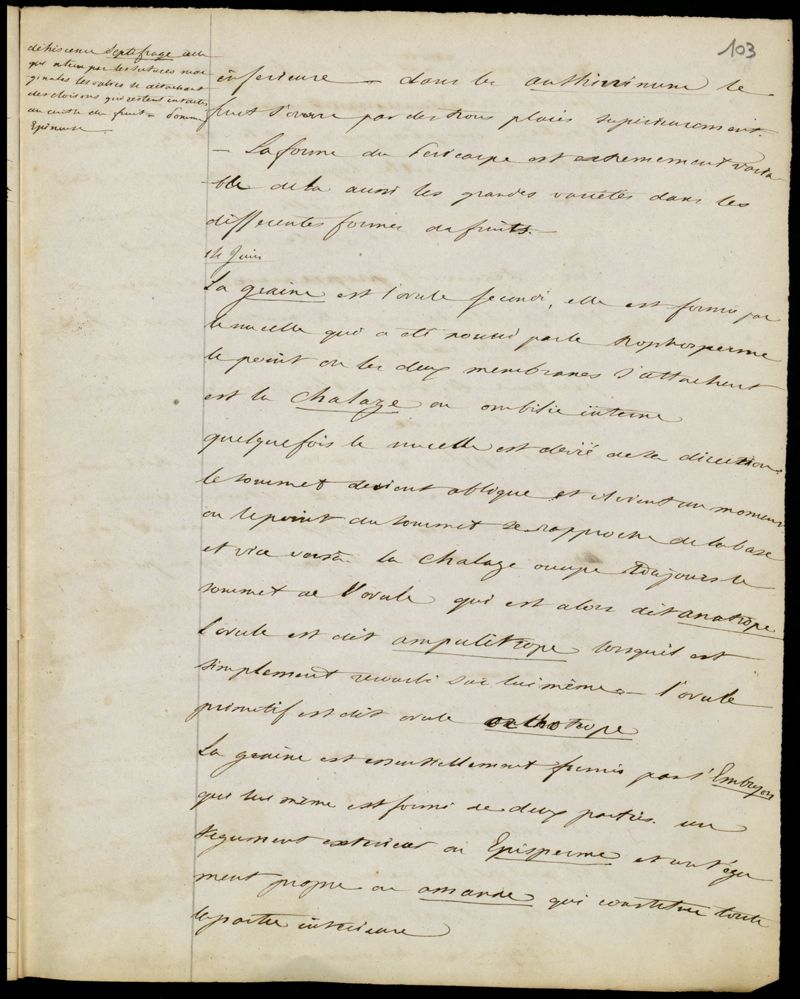 103
déhiscence Septifrage celle
qui a lieu par les sutures mar
ginales les valves se détachent
des cloisons qui restent intactes
au centre du fruit =
Epineuse
inferieure = dans les anthirrinum le
fruit s'ouvre par des trous placés superieurement.
- La forme du Pericarpe est extremement varia
ble de la aussi les grandes varietés dans les
differentes formes de fruits.
14 Juin
La graine est l'ovule fecondé, elle est formée par
le nucelle qui a été nourri par le trophosperme
le point ou les deux membranes s'attachent
est la Chalaze ou ombilic interne
quelquefois le nucelle est devié de sa direction.
le sommet devient oblique et il vient un moment
ou le point du sommet se rapproche de la base
et vice versa la Chalaze occupe toujours le
sommet de l'ovule qui est alors dit anatrope
l'ovule est dit ampulitrope lorsquil est
simplement recourbé sur lui même = l'ovule
primitif est dit ovule orthotrope
La graine est essentiellement formée par l'Embryon
qui lui même est formé de deux parties. un
tegument exterieur ou Episperme et un tégu
ment propre ou amande qui constitue toute
la partie intérieure